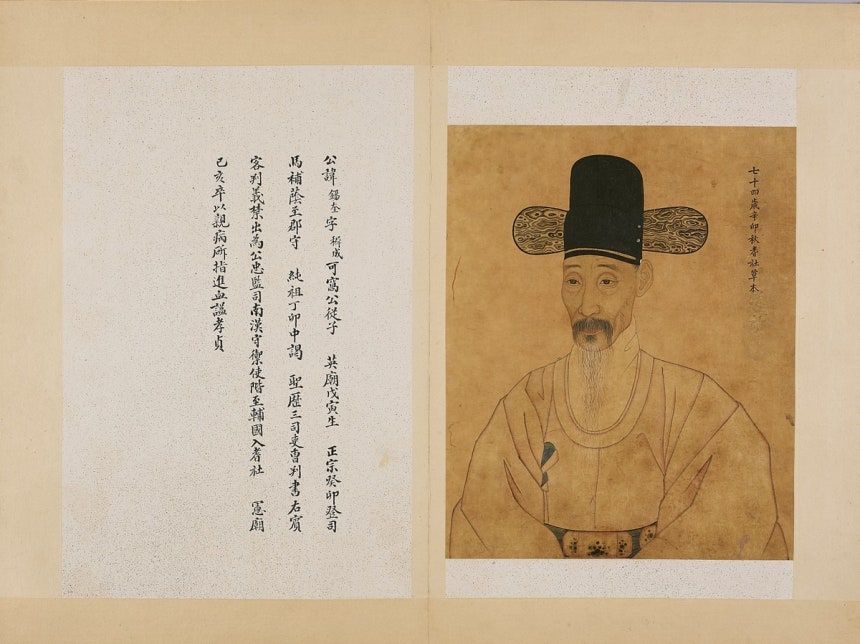 七十四歲辛卯秋耆社草本
公諱 錫奎 字 穉成 可窩公從子 英廟戊寅生 正宗癸卯登司
馬補蔭至郡守 純祖丁卯中謁 聖歷三司吏曹判書右賓
客判義禁出爲公忠監司南漢守禦使階至輔國入耆社 憲廟
己亥卒以親病斫指進血謚孝貞